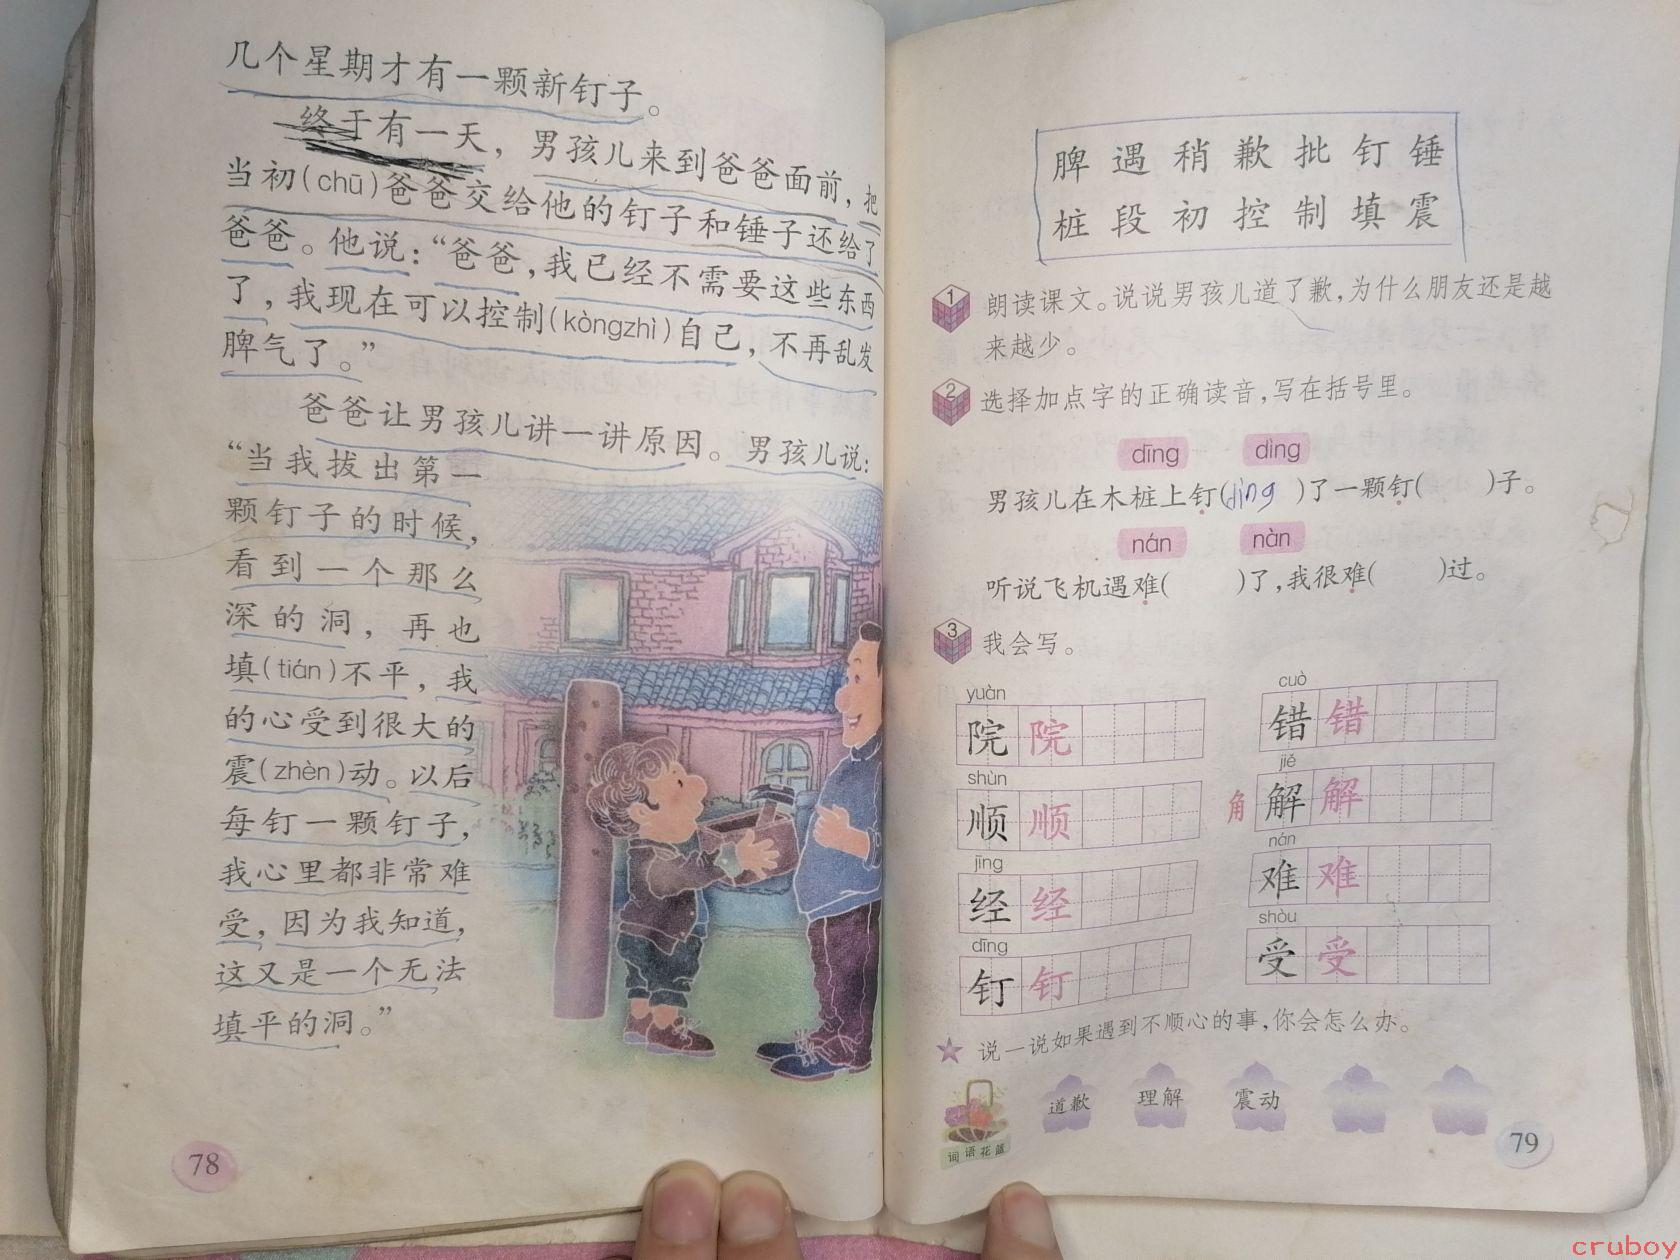 几个星期才有一颗新钉子。
终于有一天，男孩儿来到爸爸面前，把
当初(chū)爸爸交给他的钉子和锤子还给了
爸爸。他说：“爸爸，我已经不需要这些东西
了，我现在可以控制(kòngzhì)自己，不再乱发
脾气了。”
爸爸让男孩儿讲一讲原因。男孩儿说：
“当我拔出第一
颗钉子的时候，
看到一个那么
深的洞，再也
填(tián)不平，我
的心受到很大的
震(zhèn)动。以后
每钉一颗钉子，
我心里都非常难
受，因为我知道，
这又是一个无法
填平的洞。”
78
脾 遇 稍 歉 批 钉 锤
桩 段 初 控 制 填 震
1 朗读课文。说说男孩儿道了歉，为什么朋友还是越
来越少。
2 选择加点字的正确读音，写在括号里。
dīng dìng
男孩儿在木桩上钉(dìng )了一颗钉( )子。
nán nàn
听说飞机遇难( )了，我很难( )过。
3 我会写。
yuàn cuò
院 院 错 错
shùn jiě
顺 顺 角 解 解
jīng nán
经 经 难 难
dīng shòu
钉 钉 受 受
说一说如果遇到不顺心的事，你会怎么办。
道歉 理解 震动
词语花篮
79
cruboy